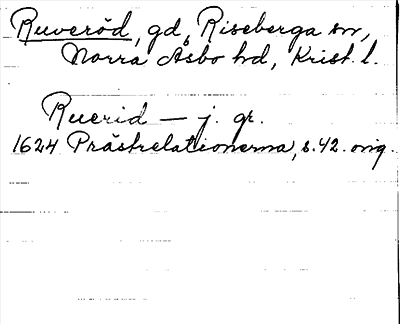 Ruveröd, gd, Riseberga sn,
Norra Åsbo hd, Krist. l.
Ruerid — j. gr.
1624 Prästrelationerna, s. 42. orig.